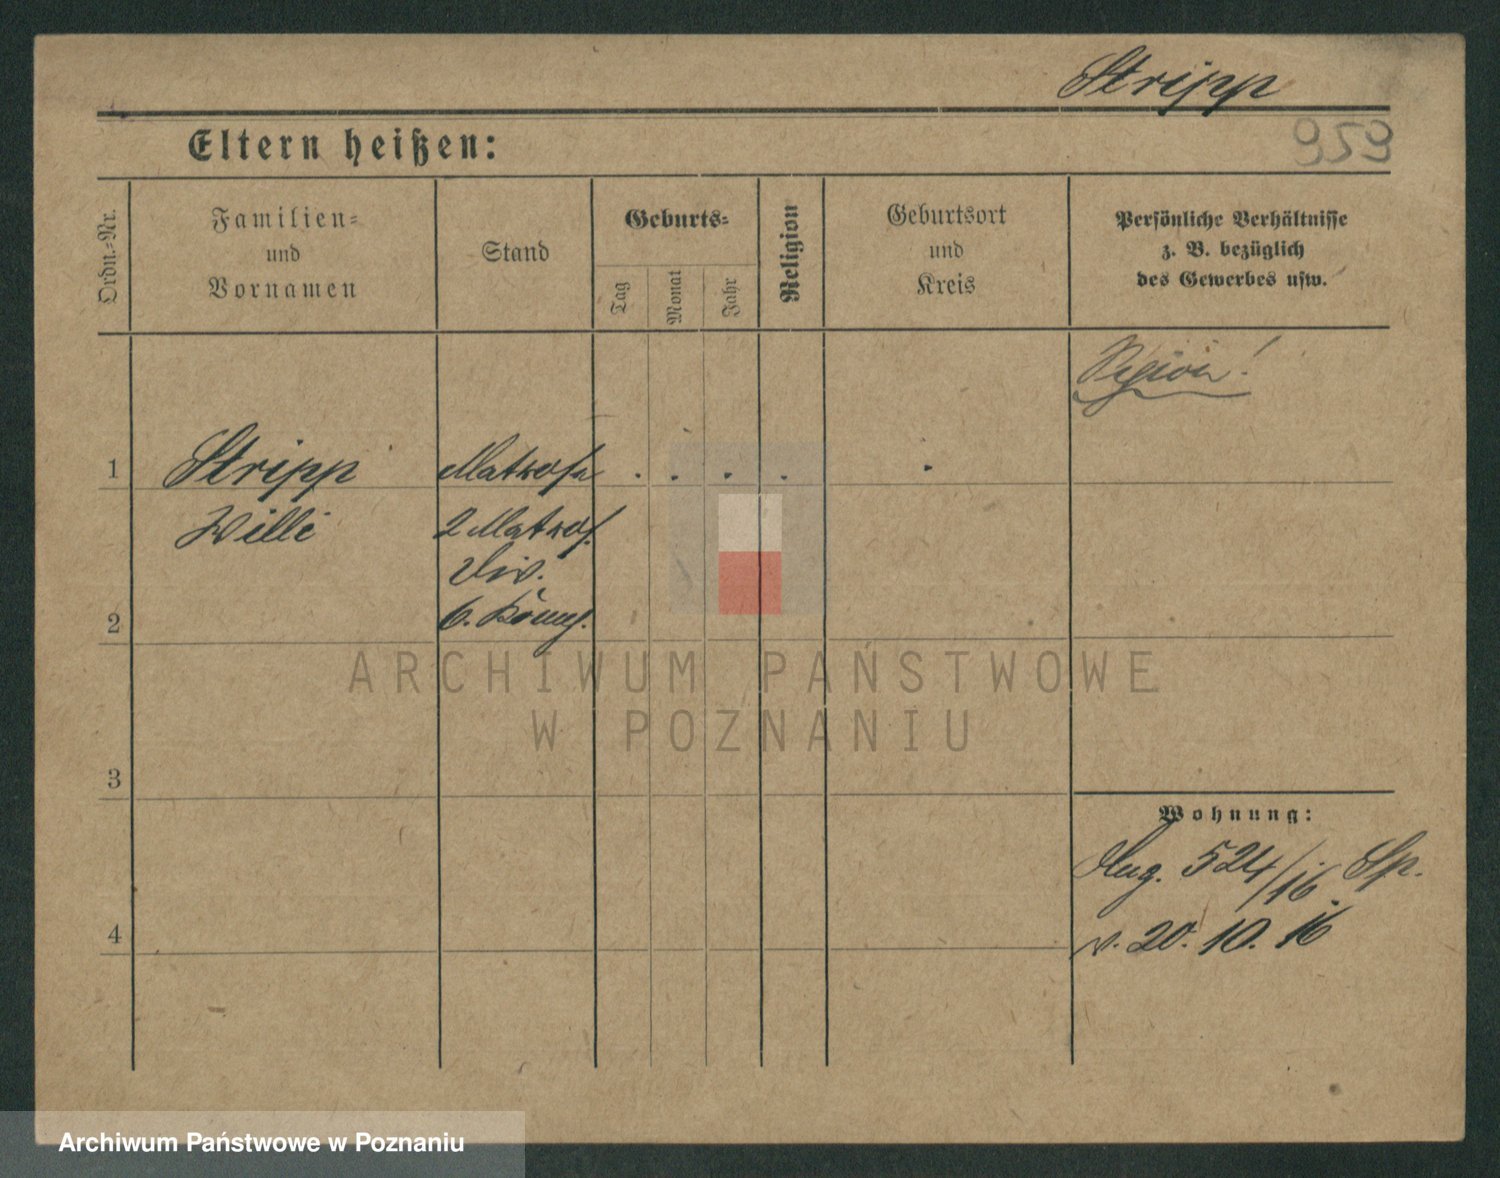 Stripp
959
Eltern heißen:
Ordn.-Nr.
Familien-
und
Vornamen
Stand
Geburts-
Tag
Monat
Jahr
Religion
Geburtsort
und
Kreis
Persönliche Verhältnisse
z. B. bezüglich
des Gewerbes usw.
1
Stripp
Matrose
Willi
2 Matros.
Div.
2
6.
ARCHIWUM PAŃSTWOWE
W POZNANIU
3
Wohnung:
524/16
4
v. 20. 10. 16
Archiwum Państwowe w Poznaniu